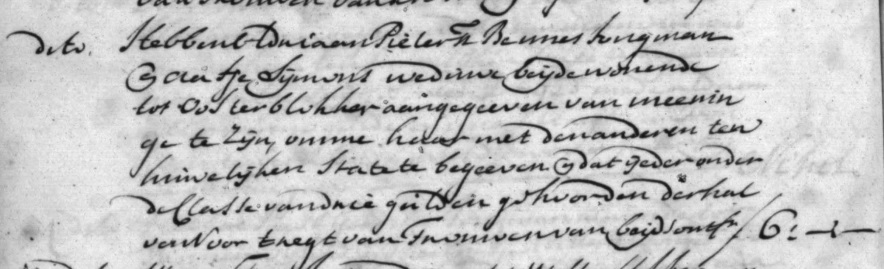 dito. Hebben Adriaan Pieter Fr Bennes Jongman
en Aafje Sijmons weduwe beijde wonende
tot Oosterblokker aangegeeven van meenin
ge te zijn, omme haar met den anderen ten
huwelijken State te begeeven en dat ijder onder
de Classe van drie gulden gehoorden derhal
ven voor t regt van Trouwen van beijds ontfr / 6:-:-